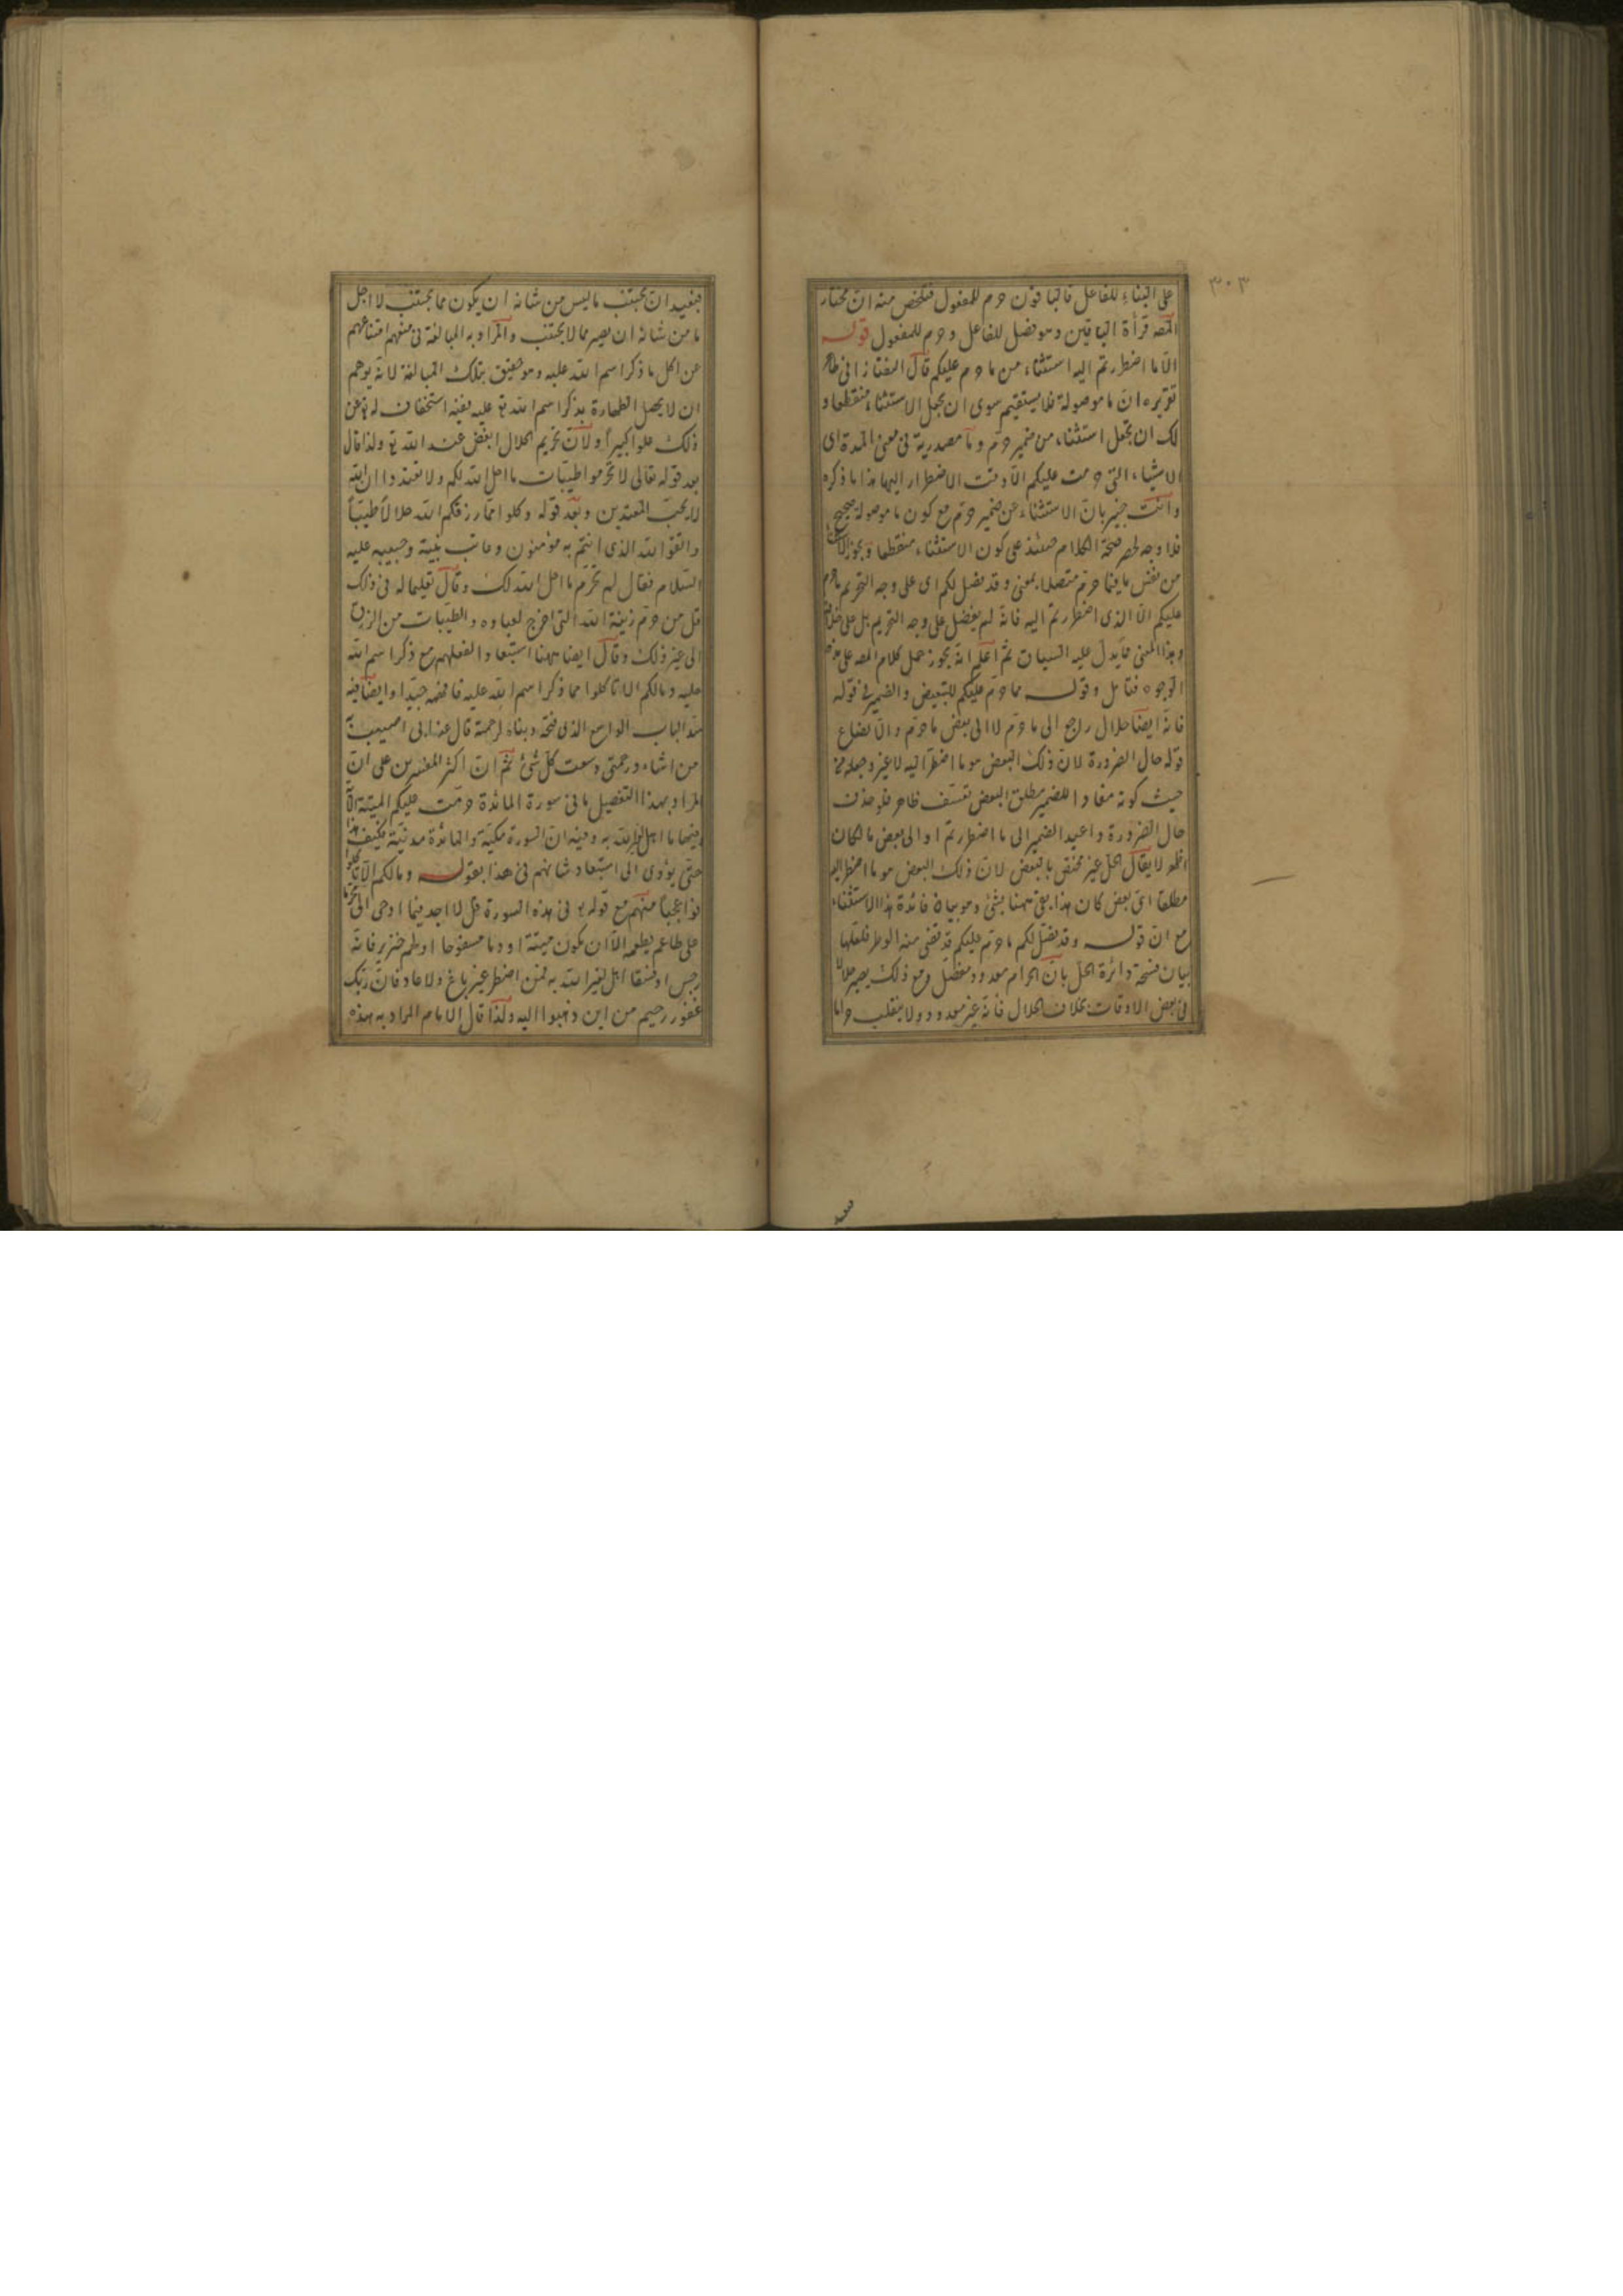 ٣٠٣
على البناء للفاعل فالباقون حرم للمفعول فتلخص منه ان مختار
المصه قرأة الباقين وهو فصل للفاعل وحرم للمفعول قوله
الا ما اضطررتم اليه استثناء من ما حرم عليكم قال التفتازانى ظاهر
تقريره ان ما موصولة فلا يستقيم سوى ان يجعل الاستثناء منقطعا و
لك ان تجعل استثناء من ضمير حرم وما مصدرية فى معنى المدة اى
الاشياء التى حرمت عليكم الا وقت الاضطرار اليها هذا ما ذكره
وانت خبير بان الاستثناء عن ضمير حرم مع كون ما موصولة صحيح
فلا وجه لحصر صحة الكلام حينئذ على كون الاستثناء منقطعا ويجوز الاستثناء
من نفس ما فيما حرم متصلا بمعنى وقد فصل لكم اى على وجه التحريم ما حرم
عليكم الا الذى اضطررتم اليه فانه لم يفصل على وجه التحريم بل على خلافه
وهذا المعنى مما يدل عليه السياق ثم اعلم انه يجوز حمل كلام المصه على هذه
الوجوه فتأمل وقوله مما حرم عليكم للتبعيض والضمير فى قوله
فانه ايضا حلال راجع الى ما حرم لا الى بعض ما حرم والا لضاع
قوله حال الضرورة لان ذلك البعض هو ما اضطر اليه لا غير وجعله من
حيث كونه مفادا للضمير مطلق البعض تعسف ظاهر فلو حذف
حال الضرورة واعيد الضمير الى ما اضطررتم او الى بعض ما لكان
اظهر لا يقال الحل غير مختص بالبعض لان ذلك البعض هو ما اضطر اليه
مطلقا اى بعض كان هذا بقى ههنا بشئ وهو بيان فائدة هذا الاستثناء
مع ان قوله وقد فصل لكم ما حرم عليكم قد قضى منه الوطر فلعلها
بيان فسحة دائرة الحل بان الحرام معدود ومفصل ومع ذلك يصير حلالا
فى بعض الاوقات بخلاف الحلال فانه غير معدود ولا ينقلب حراما
فيفيد ان يجتنب ما ليس من شانه ان يكون مما يجتنب لا اجل
ما من شانه ان يصير مما لا يجتنب والمراد به المبالغة فى منعهم امتناعهم
عن اكل ما ذكر اسم الله عليه وهو حقيق بتلك المبالغة لانه يوهم
ان لا يحصل الطهارة بذكر اسم الله تع عليه ففيه استخفاف له تع عن
ذلك علوا كبيرا ولان تحريم الحلال ابغض عند الله تع ولذا قال
بعد قوله تعالى لا تحرموا طيبات ما احل الله لكم ولا تعتدوا ان الله
لا يحب المعتدين وبعد قوله وكلوا مما رزقكم الله حلالا طيبا
واتقوا الله الذى انتم به مؤمنون وعاتب نبيه وحبيبه عليه
السلام فقال لم تحرم ما احل الله لك وقال تعليما له فى ذلك
قل من حرم زينة الله التى اخرج لعباده والطيبات من الرزق
الى غير ذلك وقال ايضا ههنا استبعادا لفعلهم مع ذكر اسم الله
عليه ومالكم الا تأكلوا مما ذكر اسم الله عليه فافهمه جيدا وايضا فيه
سد الباب الواسع الذى فتحه وبناه لرحمة قال عذابى اصيب به
من اشاء ورحمتى وسعت كل شئ ثم ان اكثر المفسرين على ان
المراد بهذا التفصيل ما فى سورة المائدة حرمت عليكم الميتة الآية
فيها ما اهل لغير الله به وفيه ان السورة مكية والمائدة مدنية فكيف هذا
حتى يؤدى الى استبعاد شانهم فى هذا بقوله ومالكم الا تأكلوا
فوا عجبا منهم مع قوله تع فى هذه السورة قل لا اجد فيما اوحى الى محرما
على طاعم يطعمه الا ان يكون ميتة او دما مسفوحا او لحم خنزير فانه
رجس او فسقا اهل لغير الله به فمن اضطر غير باغ ولا عاد فان ربك
غفور رحيم من اين ذهبوا اليه ولذا قال الامام المراد به هذه